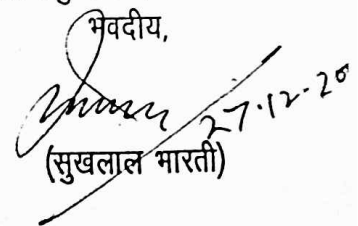 भवदीय,
27.12.20
(सुखलाल भारती)